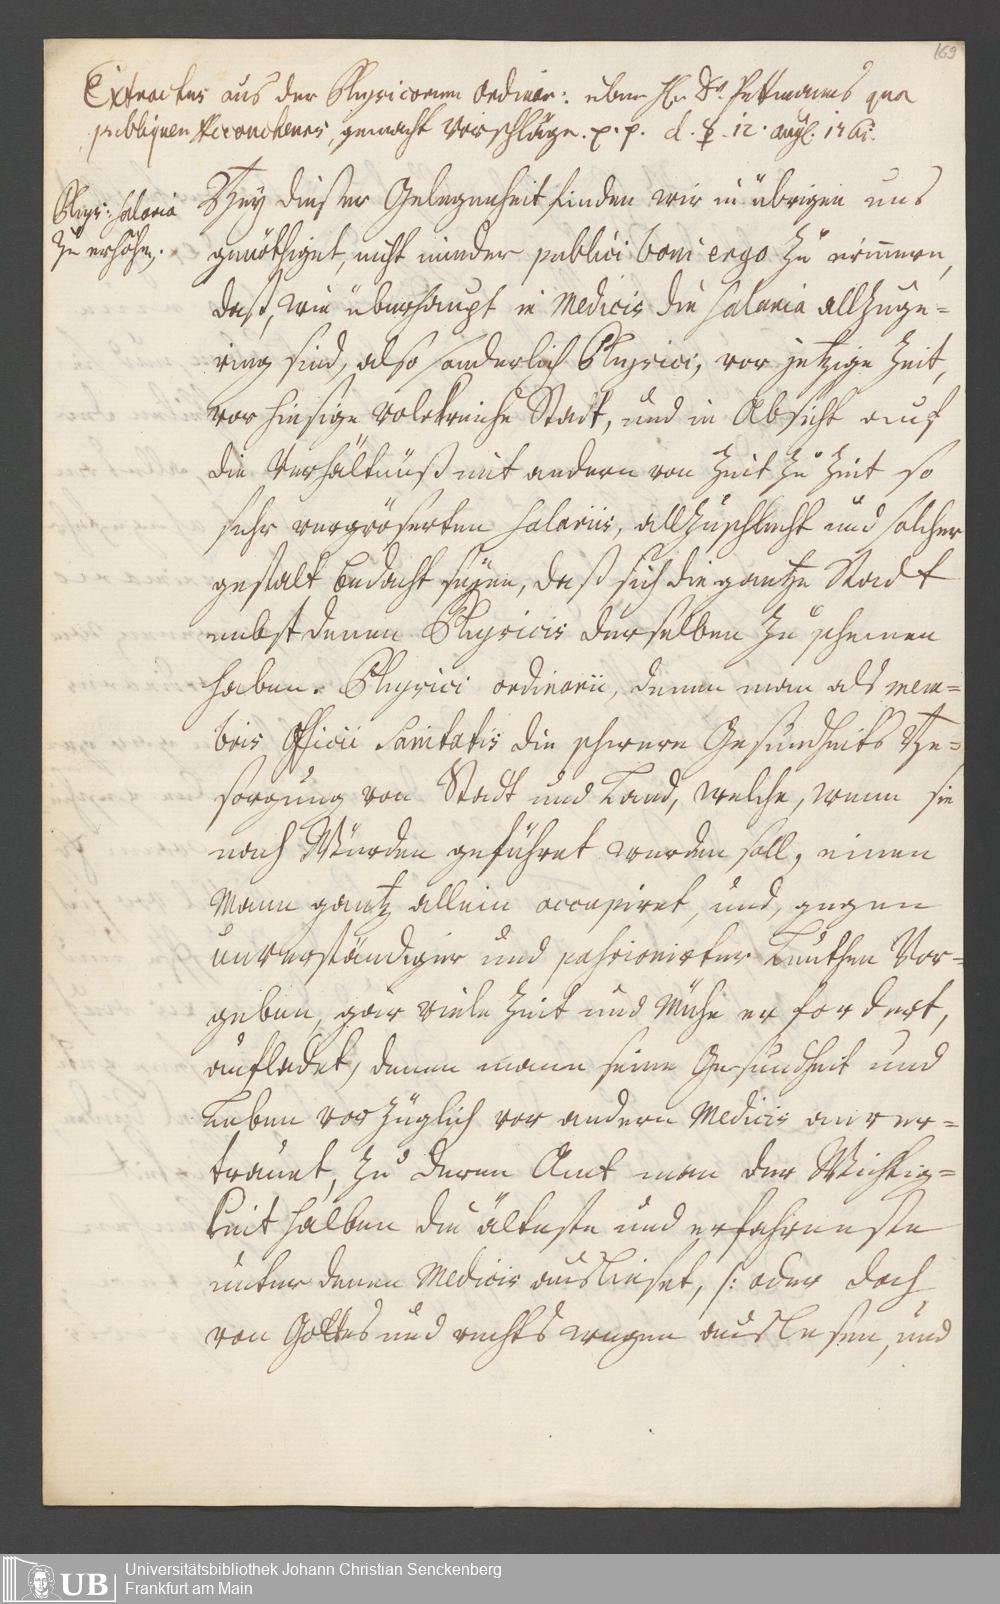 169
Extractus aus der Physicorum Ordinar: uber H. Dr. Pettmanns qua
publiquen Accoucheurs, gemacht Vorschläge. p. p. d. ☿ 12. augl. 176
Phys: Salaria
zu erhöhen.
Bey dießer Gelegenheit finden wir im übrigen uns
genöthiget, nicht minder publici boni ergo zu erinnern,
daß, wie überhaupt in Medicis die Salaria allzuge=
ring sind, also sonderlich Physici, vor jetzige Zeit,
vor hiesige Volckreiche Stadt, und in Absicht auf
die Verhältnüß mit andern von Zeit zu Zeit so
sehr vergrößerten Salariis, allzuschlecht und solcher
gestalt bedacht seyen, daß sich die gantze Stadt
nebst denen Physicis derselben zu schemen
haben. Physici ordinarii, denen man als mem=
bris Officii Sanitatis die schwere Gesundheits Be=
sorgung von Stadt und Land, welche, wenn sie
nach Würden geführet werden soll, einen
Mann gantz allein occupiret, und, gegen
unverständiger und passionirter Leuthen Vor=
geben, gar viele Zeit und Mühe erfordert,
aufladet, denen mann seine Gesundheit und
Leben vorzüglich vor andern Medicis anver=
trauet, zu deren Amt man der Wichtig=
keit halben die älteste und erfahrenste
unter denen Medicis ausließet, /: oder doch
von Gottes und rechts wegen auslesen, und
UB
Universitätsbibliothek Johann Christian Senckenberg
Frankfurt am Main